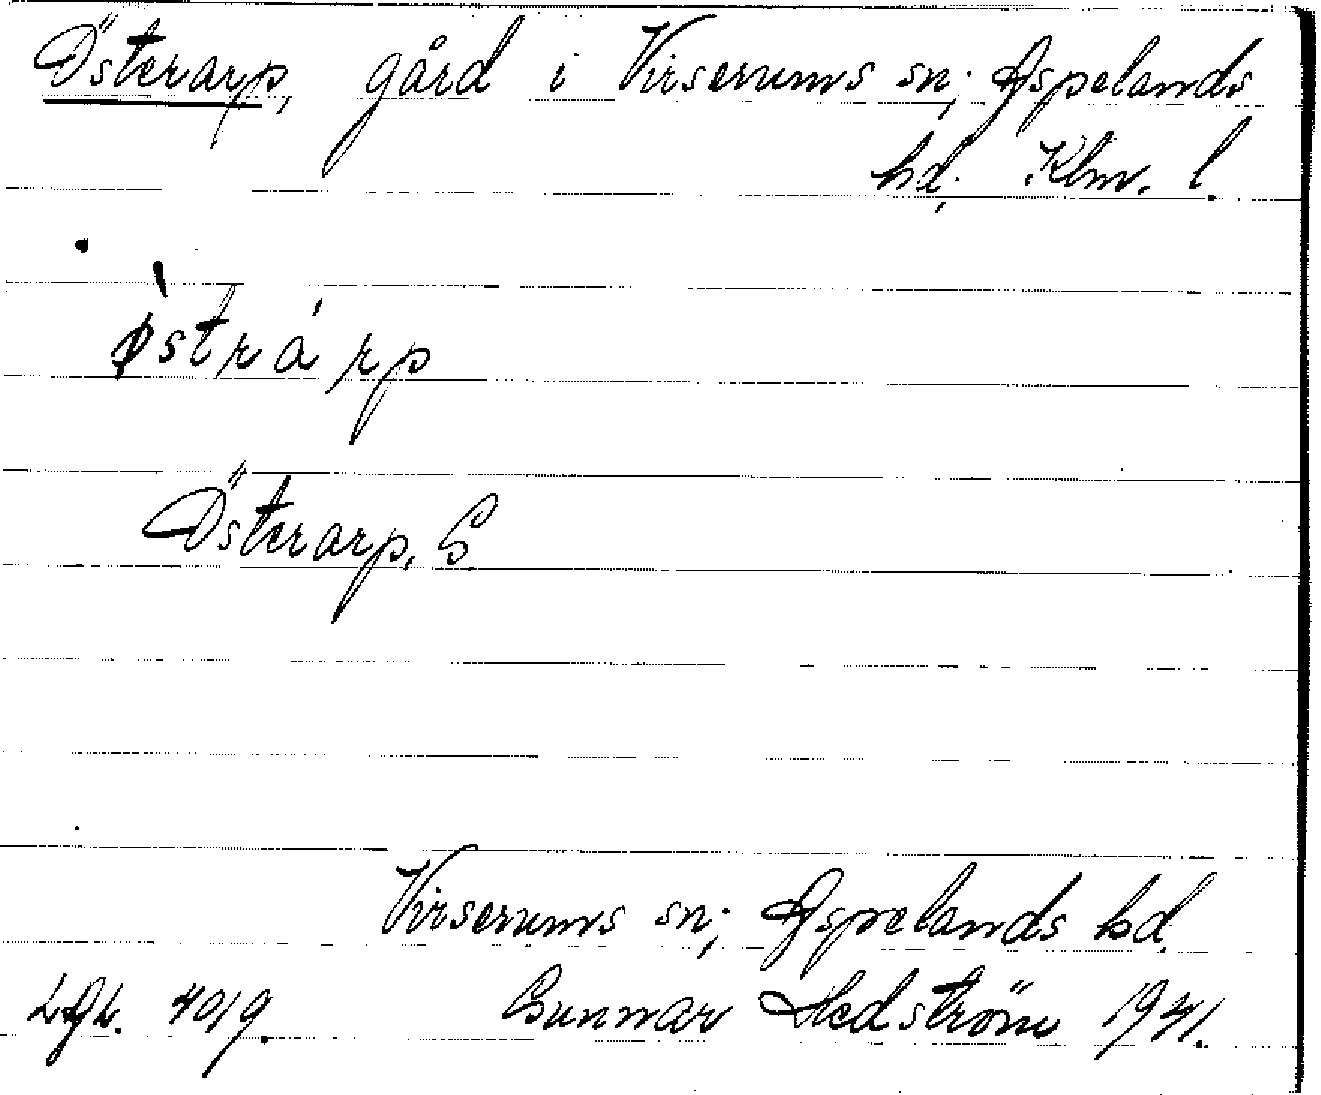 Österarp, gård i Virserums sn; Aspelands
hd; Klm. l.
ø̀strárp
Österarp, G
Virserums sn; Aspelands hd.
4019. Gunnar Hedström 1941.